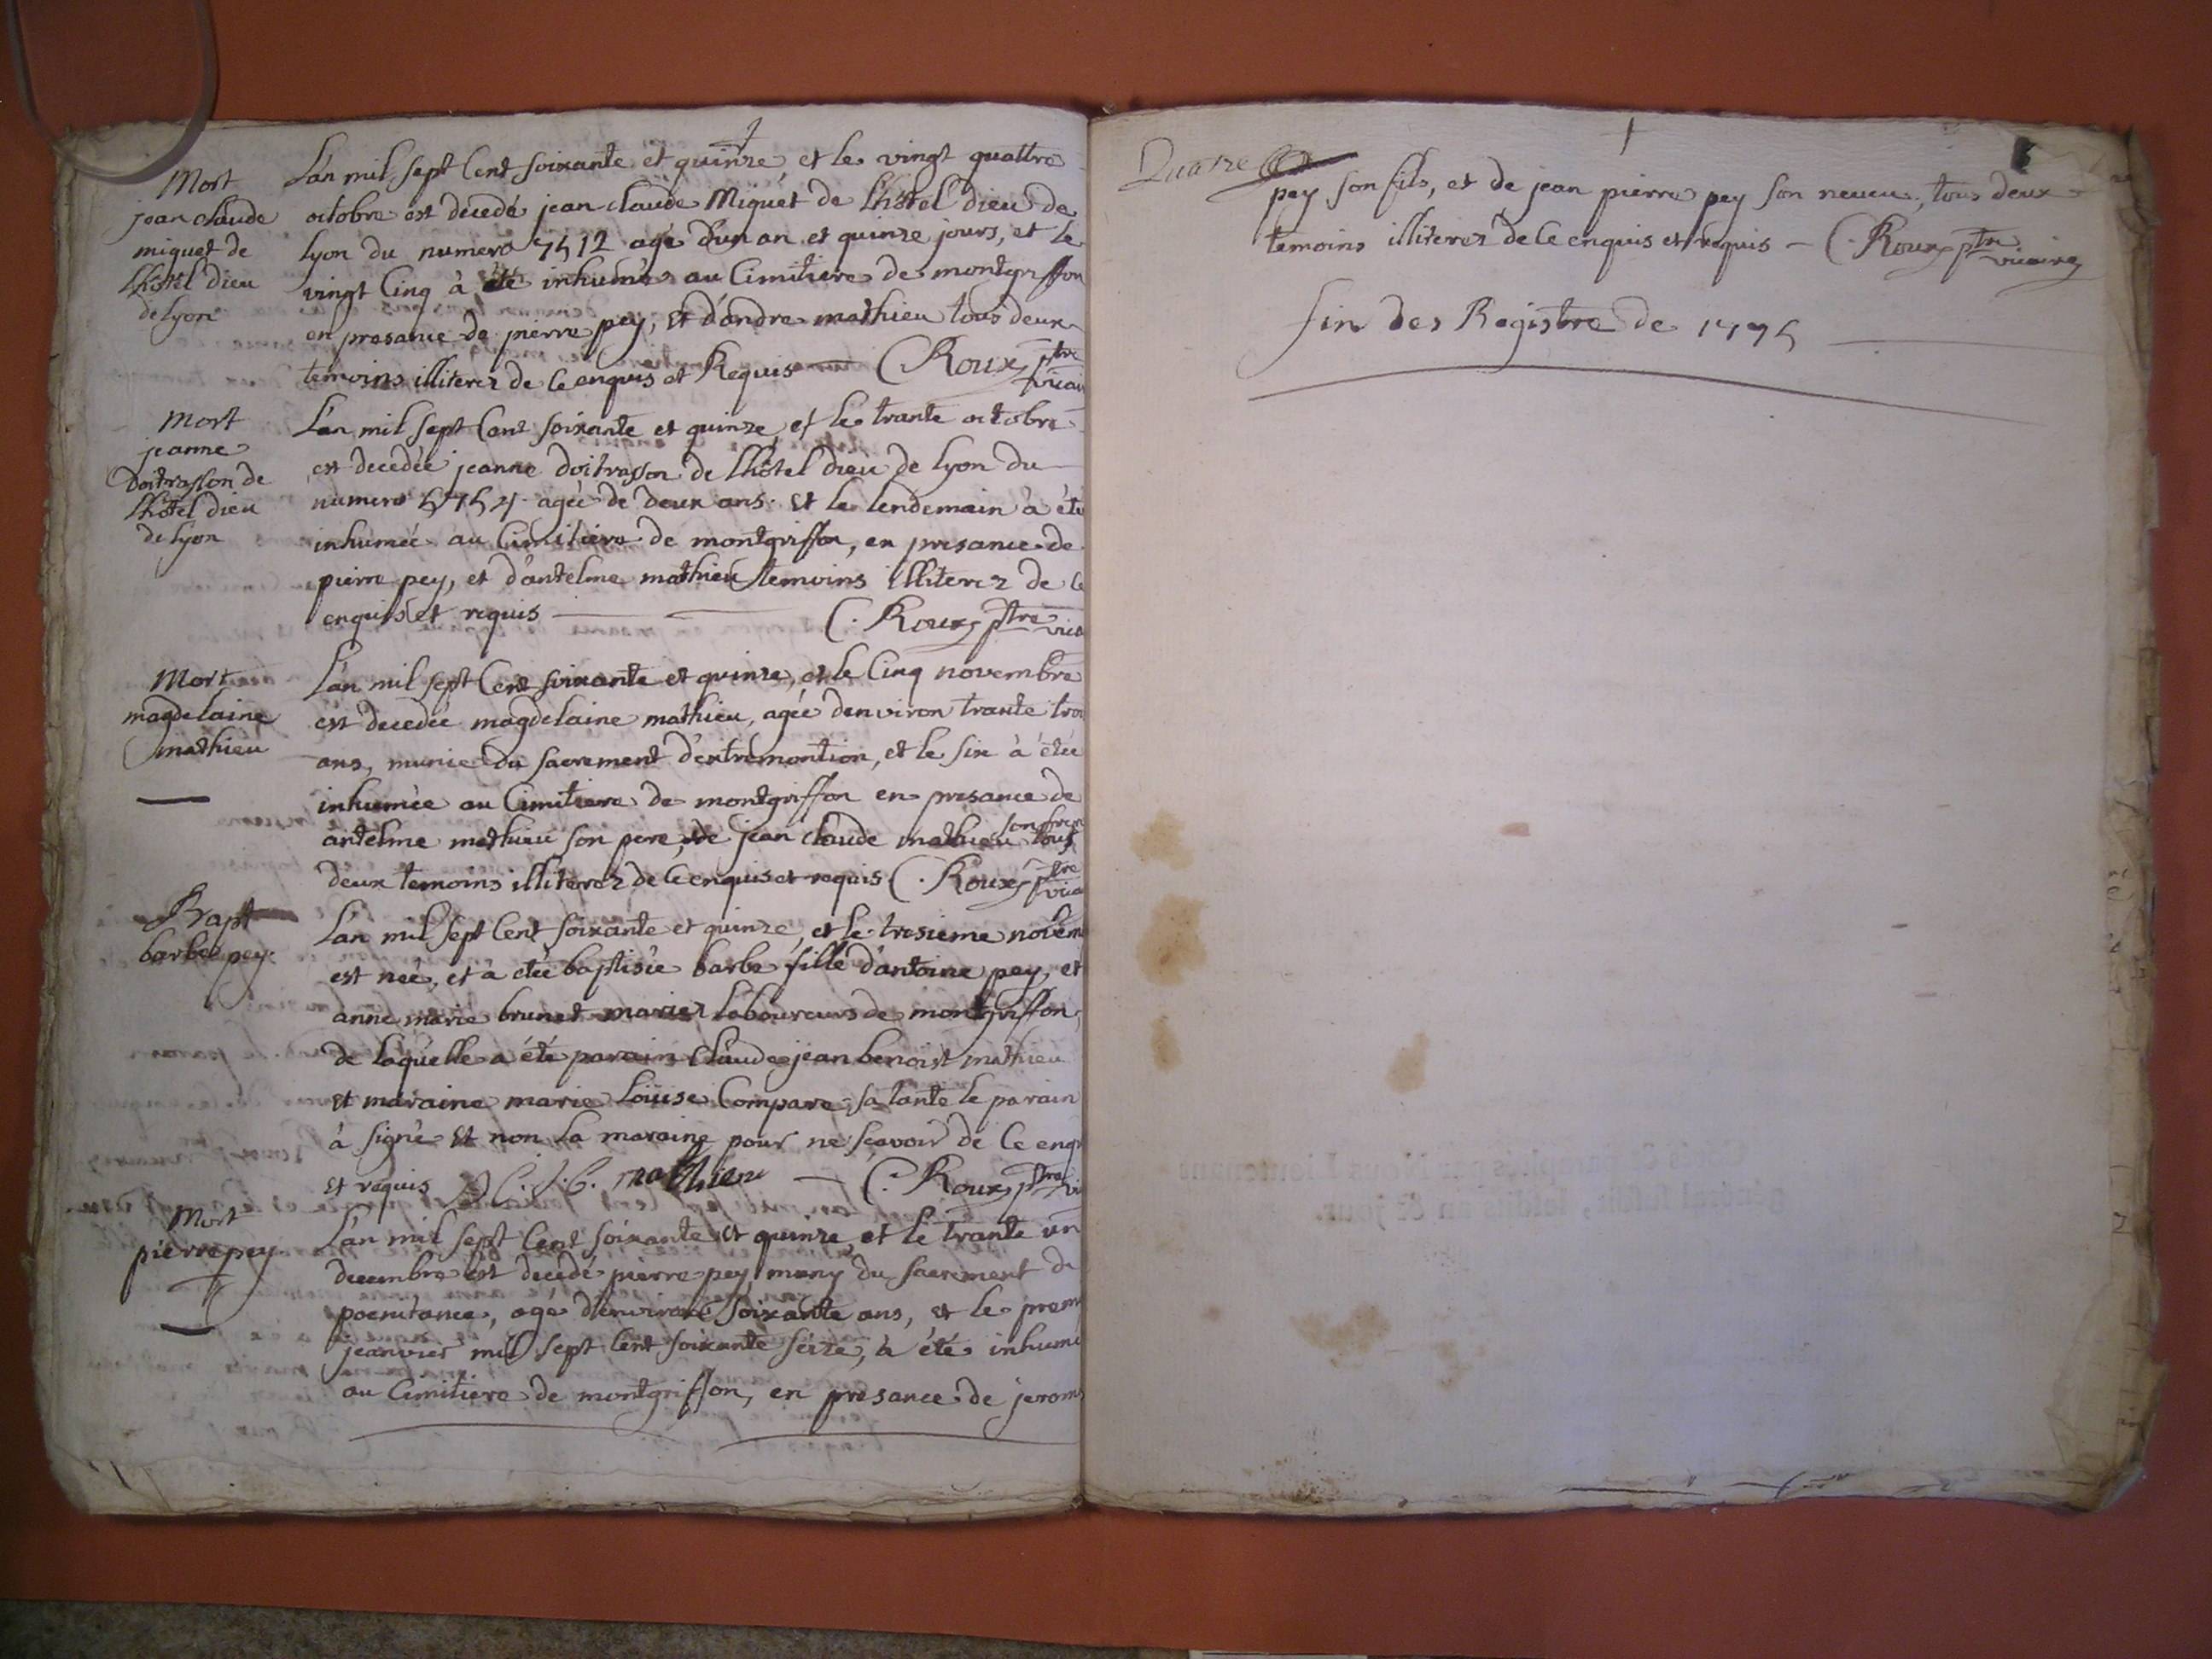 Mort
jean claude
miguet de
Lhôtel Dieu
de lyon
L'an mil sept Cent soixante et quinze, et le vingt quattre
octobre est decedé jean claude Miguet de Lhôtel dieu de
lyon du numero 7512 agé d'un an et quinze jours, et le
vingt Cinq à été inhumé au Cimitiere de montgriffon
en presance de pierre pey, et d'andre mathieu tous deux
temoins illiterez de Ce enquis et Requis — C. Roux ptre vicai
Mort
jeanne
Doitrasson de
Lhôtel dieu
de lyon
L'an mil sept Cent soixante et quinze, et le trante octobre
est decedée jeanne doitrasson de Lhôtel dieu de lyon du
numero 5754 agée de deux ans. Et le lendemain à été
inhumée au Cimitiere de montgriffon, en presance de
pierre pey, et d'antelme mathieu temoins illiterez de Ce
enquis et requis — C. Roux ptre vica
Mort
magdelaine
mathieu
L'an mil sept Cent soixante et quinze, et le Cinq novembre
est decedée magdelaine mathieu, agée denviron trante troi
ans, munie du sacrement d'extremontion, et le six à étée
inhumée au Cimitiere de montgriffon en presance de
antelme mathieu son pere, et de jean claude mathieu son frere tous
deux temoins illiterez de Ce enquis et requis C. Roux ptre vica
Bapt
barbe pey
L'an mil sept Cent soixante et quinze, et le troisieme novem
est neé, et à étée baptisée barbe fille d'antoine pey, et
anne marie brunet mariez laboureurs de montgriffon,
de laquelle a été parain Claude jean benoist mathieu
et maraine marie Loüise Compare sa tante le parain
à signé et non la maraine pour ne sçavoir de Ce enqu
et requis C. J. B. mathieu — C. Roux ptre vi
Mort
pierre pey
L'an mil sept Cent soixante et quinze, et le trante un
decembre est decedé pierre pey muny du sacrement de
poenitance, agé d'environ soixante ans, et le premi
jeanvier mil sept Cent soixante seize, à été inhumé
au Cimitiere de montgriffon, en presance de jerome
Quatre
pey son fils, et de jean pierre pey son neveu, tous deux
temoins illiterez de Ce enquis et requis — C. Roux ptre vicaire
fin des Registre de 1775